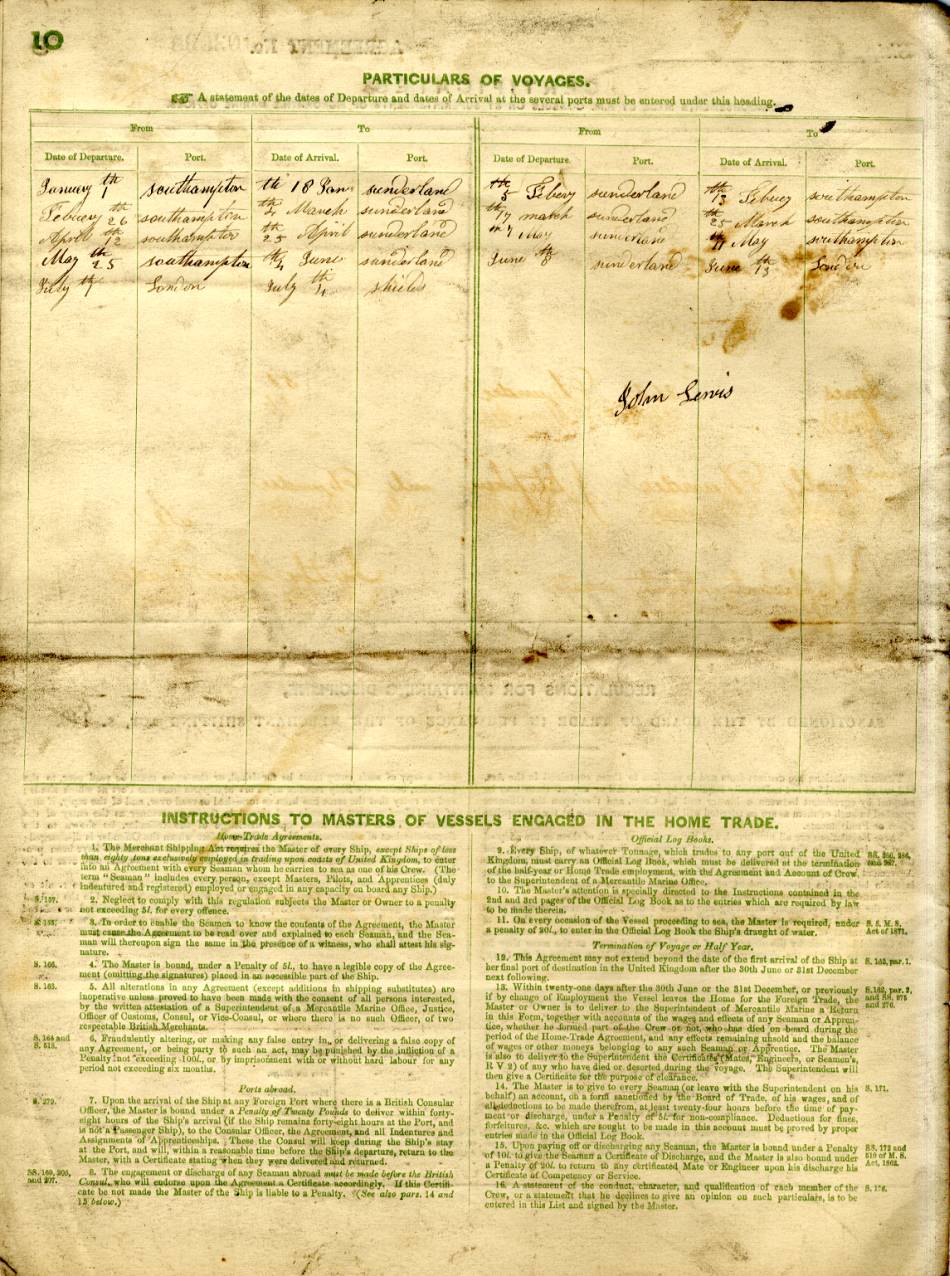 10
PARTICULARS OF VOYAGES.
A statement of the dates of Departure and dates of Arrival at the several ports must be entered under this heading.
From To From To
Date of Departure. Port. Date of Arrival. Port. Date of Departure. Port. Date of Arrival. Port.
January th 1 southampton th 18 Jan sunderland th 5 Febury sunderland th 13 Febuey southampton
Febuey th 26 southampton th 4 March sunderland th 17 march sunderland th 25 March southampton
April th 12 southampton th 25 April sunderland th 7 May sunderland th 11 May southampton
May th 25 southampton th 4 June sunderland June th 8 sunderland June th 13 London
July th 1 London July th 4 shields
John Lewis
INSTRUCTIONS TO MASTERS OF VESSELS ENGAGED IN THE HOME TRADE.
Home-Trade Agreements.
1. The Merchant Shipping Act requires the Master of every Ship, except Ships of less
than eighty tons exclusively employed in trading upon coasts of United Kingdom, to enter
into an Agreement with every Seaman whom he carries to sea as one of his Crew. (The
term "Seaman" includes every person, except Masters, Pilots, and Apprentices (duly
indentured and registered) employed or engaged in any capacity on board any Ship.)
S. 157. 2. Neglect to comply with this regulation subjects the Master or Owner to a penalty
not exceeding 5l. for every offence.
3. In order to enable the Seamen to know the contents of the Agreement, the Master
must cause the Agreement to be read over and explained to each Seaman, and the Sea-
man will thereupon sign the same in the presence of a witness, who shall attest his sig-
nature.
S. 166. 4. The Master is bound, under a Penalty of 5l., to have a legible copy of the Agree-
ment (omitting the signatures) placed in an accessible part of the Ship.
S. 163. 5. All alterations in any Agreement (except additions in shipping substitutes) are
inoperative unless proved to have been made with the consent of all persons interested,
by the written attestation of a Superintendent of a Mercantile Marine Office, Justice,
Officer of Customs, Consul, or Vice-Consul, or where there is no such Officer, of two
respectable British Merchants.
S. 164 and 6. Fraudulently altering, or making any false entry in, or delivering a false copy of
S. 518. any Agreement, or being party to such an act, may be punished by the infliction of a
Penalty not exceeding 100l., or by imprisonment with or without hard labour for any
period not exceeding six months.
Ports abroad.
S. 279. 7. Upon the arrival of the Ship at any Foreign Port where there is a British Consular
Officer, the Master is bound under a Penalty of Twenty Pounds to deliver within forty-
eight hours of the Ship's arrival (if the Ship remains forty-eight hours at the Port, and
is a Passenger Ship), to the Consular Officer, the Agreement, and all Indentures and
Assignments of Apprenticeships. These the Consul will keep during the Ship's stay
at the Port, and will, within a reasonable time before the Ship's departure, return to the
Master, with a Certificate stating when they were delivered and returned.
SS. 160, 205, 8. The engagement or discharge of any Seaman abroad must be made before the British
and 207. Consul, who will endorse upon the Agreement a Certificate accordingly. If this Certifi-
cate be not made the Master of the Ship is liable to a Penalty. (See also pars. 14 and
15 below.)
Official Log Books.
9. Every Ship, of whatever Tonnage, which trades to any port out of the United
Kingdom, must carry an Official Log Book, which must be delivered at the termination
of the half-year or Home Trade employment, with the Agreement and Account of Crew,
to the Superintendent of a Mercantile Marine Office.
10. The Master's attention is specially directed to the Instructions contained in the
2nd and 3rd pages of the Official Log Book as to the entries which are required by law
to be made therein.
11. On every occasion of the Vessel proceeding to sea, the Master is required, under S. 5. M. S.
a penalty of 20l., to enter in the Official Log Book the Ship's draught of water. Act of 1871.
Termination of Voyage or Half Year.
12. This Agreement may not extend beyond the date of the first arrival of the Ship at S. 155, par. 1.
her final port of destination in the United Kingdom after the 30th June or 31st December
next following.
13. Within twenty-one days after the 30th June or the 31st December, or previously S. 162, par. 3,
if by change of Employment the Vessel leaves the Home for the Foreign Trade, the and SS. 275
Master or Owner is to deliver to the Superintendent of Mercantile Marine a Return and 276.
in this Form, together with an account of the wages and effects of any Seaman or Appren-
tice, whether he formed part of the Crew or not, who has died on board during the
period of the Home-Trade Agreement, and any effects remaining unsold and the balance
of wages or other moneys belonging to any such Seaman or Apprentice. The Master
is also to deliver to the Superintendent the Certificates (Mates, Engineers, or Seamen's,
R V 2) of any who have died or deserted during the voyage. The Superintendent will
then give a Certificate for the purpose of clearance.
14. The Master is to give to every Seaman (or leave with the Superintendent on his S. 171.
behalf) an account, on a form sanctioned by the Board of Trade, of his wages, and of
all deductions to be made therefrom, at least twenty-four hours before the time of pay-
ment or discharge, under a Penalty of 5l. for non-compliance. Deductions for fines,
forfeitures, &c. which are sought to be made in this account must be proved by proper
entries made in the Official Log Book.
15. Upon paying off or discharging any Seaman, the Master is bound under a Penalty SS. 172 and
of 10l. to give the Seaman a Certificate of Discharge, and the Master is also bound under S10 of M. S.
a Penalty of 20l. to return to any certificated Mate or Engineer upon his discharge his Act, 1862.
Certificate of Competency or Service.
16. A statement of the conduct, character, and qualification of each member of the S. 176.
Crew, or a statement that he declines to give an opinion on such particulars, is to be
entered in this List and signed by the Master.